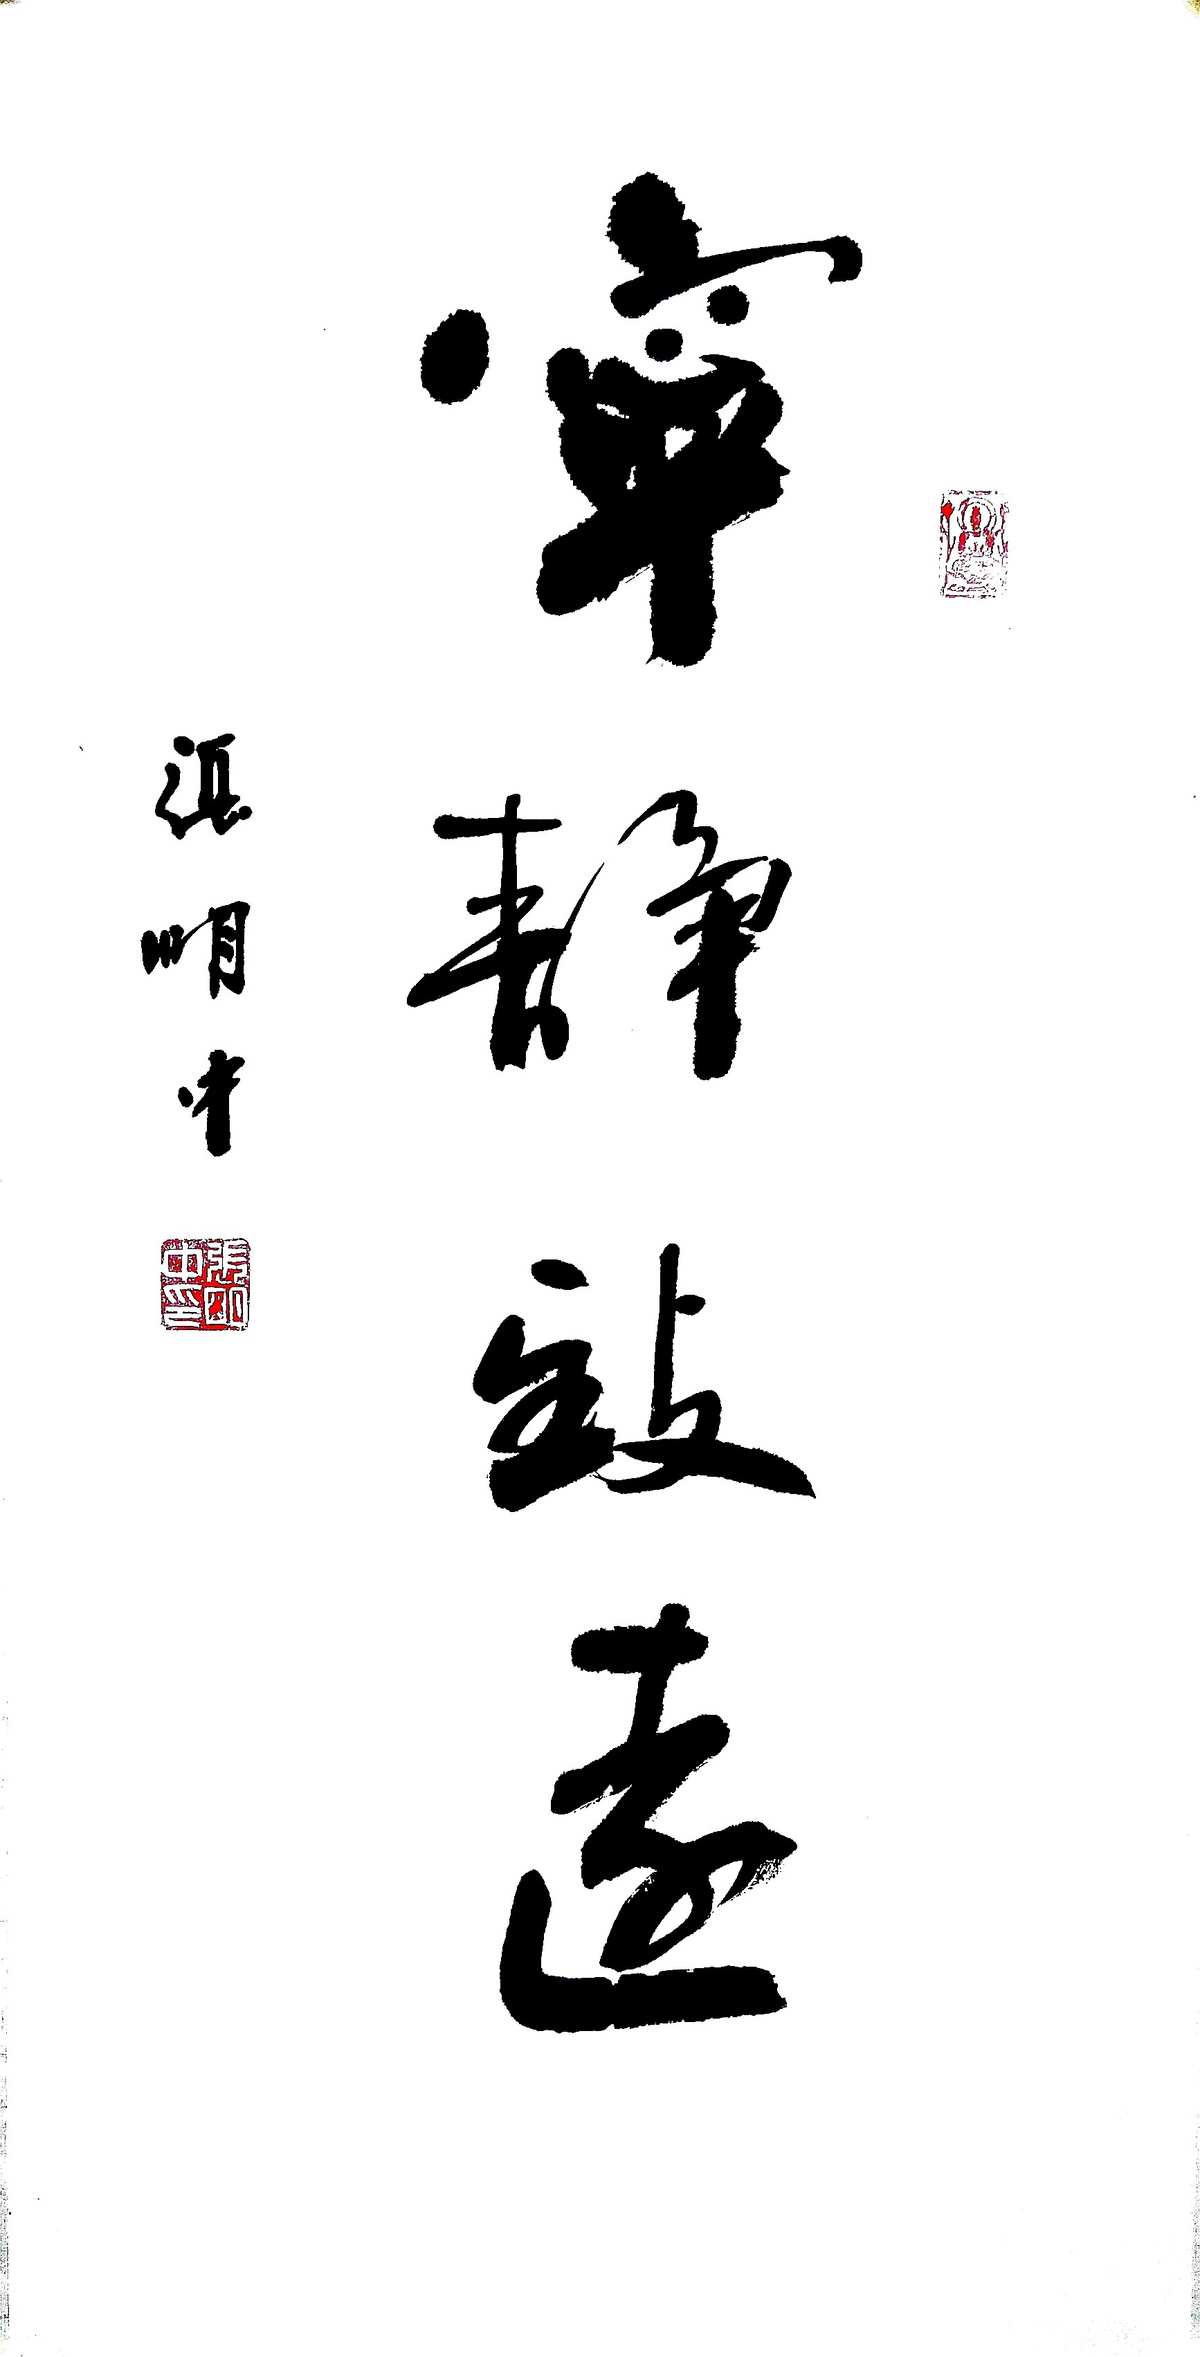 寧靜致遠
張明中
張明中印